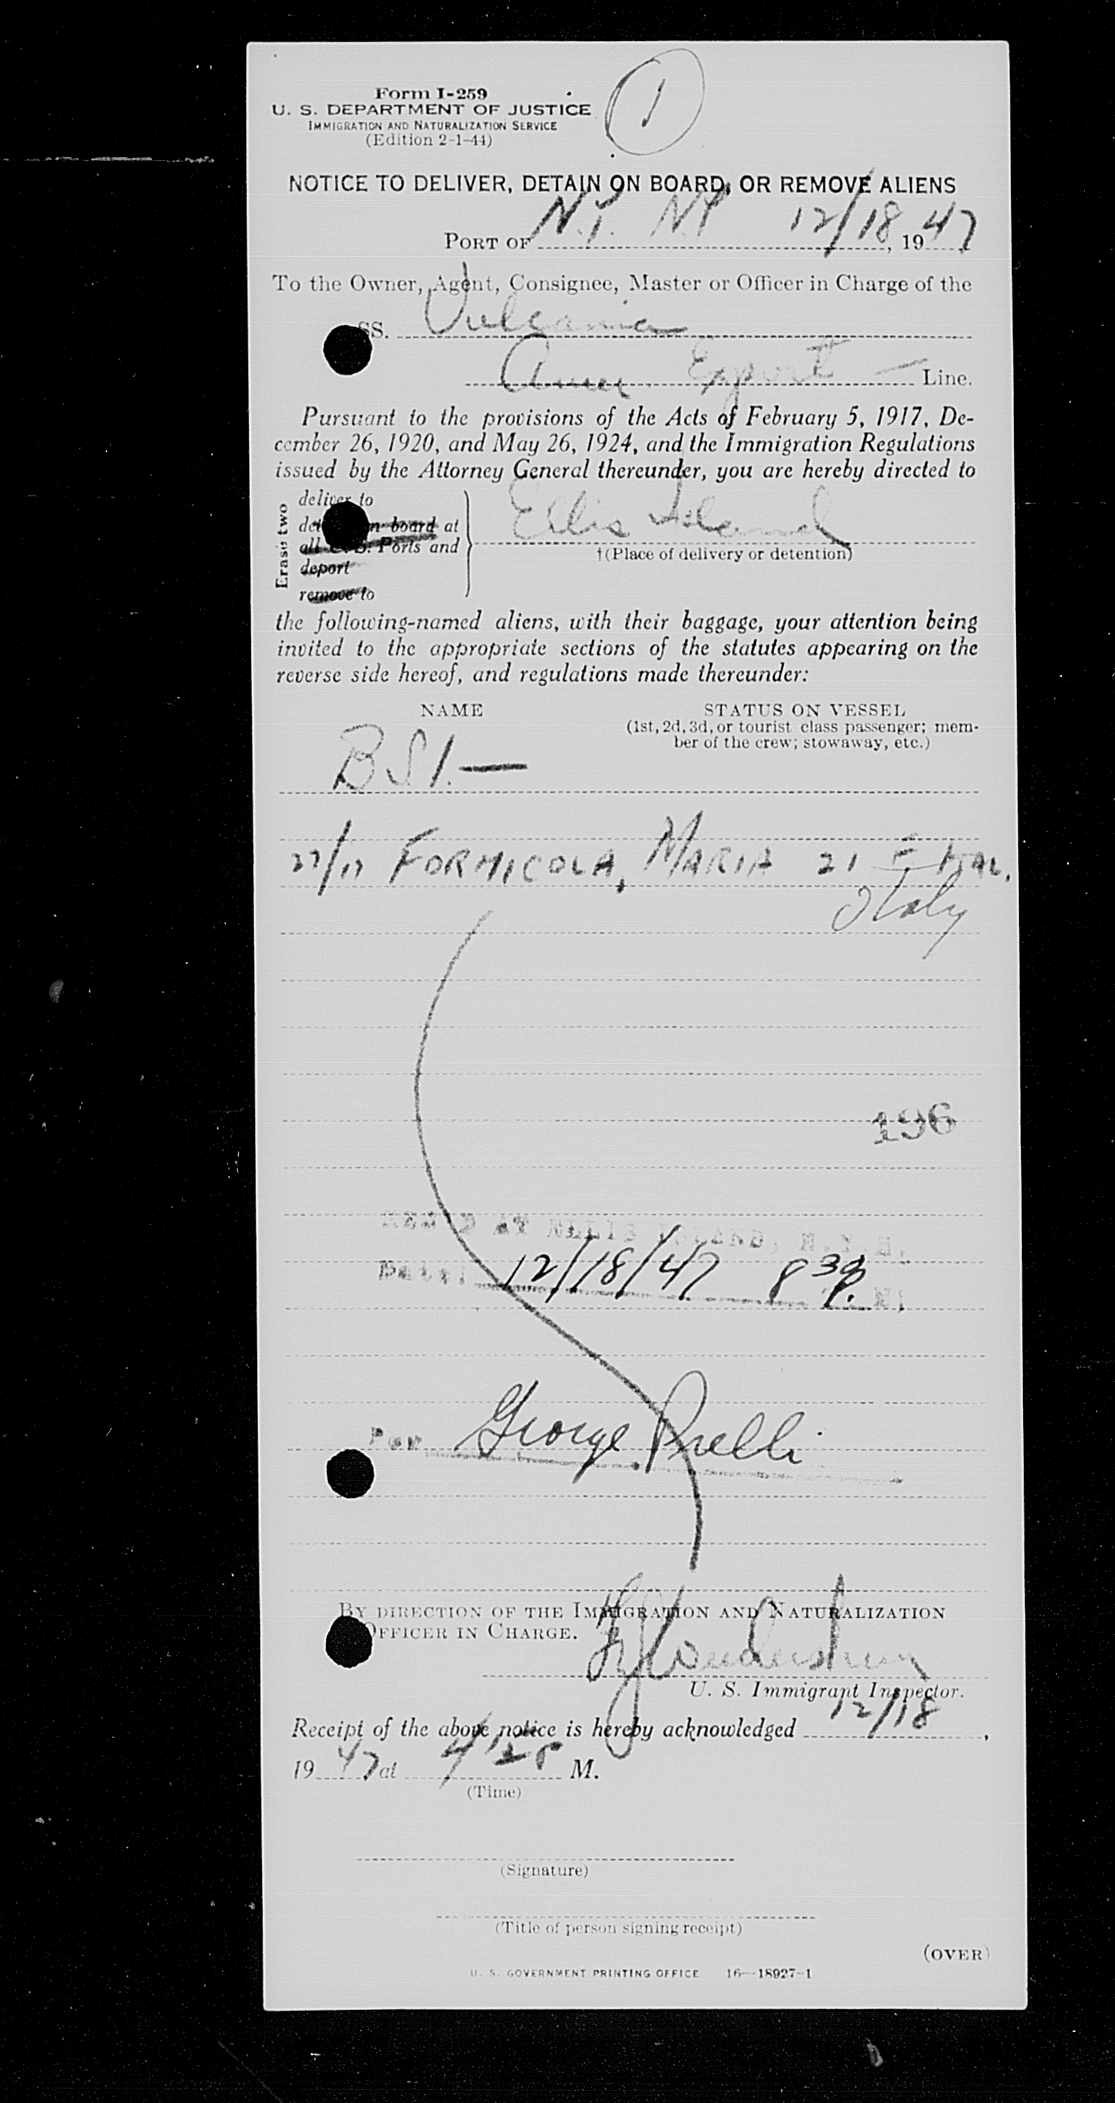 1
Form I-259
U. S. DEPARTMENT OF JUSTICE
IMMIGRATION AND NATURALIZATION SERVICE
(Edition 2-1-44)
NOTICE TO DELIVER, DETAIN ON BOARD, OR REMOVE ALIENS
PORT OF N.Y. N.Y. 12/18, 1947
To the Owner, Agent, Consignee, Master or Officer in Charge of the
SS. Vulcania
Amer. Export Line.
Pursuant to the provisions of the Acts of February 5, 1917, De-
cember 26, 1920, and May 26, 1924, and the Immigration Regulations
issued by the Attorney General thereunder, you are hereby directed to
Erase two
deliver to
board at
all U. S. Ports and
deport
remove to
Ellis Island
†(Place of delivery or detention)
the following-named aliens, with their baggage, your attention being
invited to the appropriate sections of the statutes appearing on the
reverse side hereof, and regulations made thereunder:
NAME STATUS ON VESSEL
(1st, 2d, 3d, or tourist class passenger; mem-
ber of the crew; stowaway, etc.)
B.S.I.—
27/17 FORMICOLA, MARIA 21 F ITAL.
Italy
196
REC'D AT ELLIS ISLAND, N.Y.H.
Date: 12/18/47 8 30 P. M.
Per George
BY DIRECTION OF THE IMMIGRATION AND NATURALIZATION
OFFICER IN CHARGE.
U. S. Immigrant Inspector.
Receipt of the above notice is hereby acknowledged 12/18,
1947 at 4/25 M.
(Time)
(Signature)
(Title of person signing receipt)
(OVER)
U. S. GOVERNMENT PRINTING OFFICE 16—18927-1